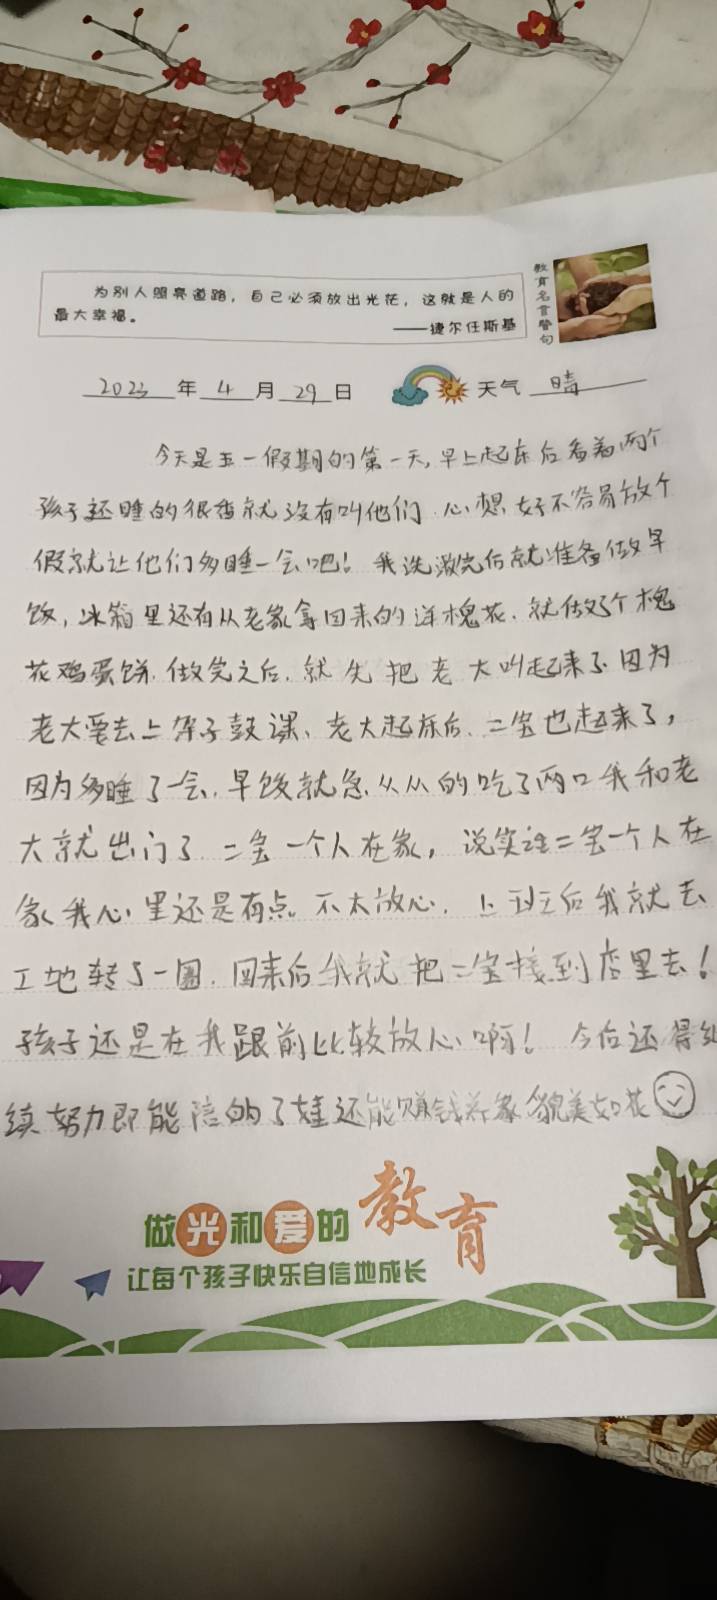 为别人照亮道路，自己必须放出光芒，这就是人的
最大幸福。
——捷尔任斯基
教育名言警句
2023年4月29日 天气 晴
今天是五一假期的第一天,早上起床后看着两个
孩子还睡的很香就没有叫他们.心想好不容易放个
假就让他们多睡一会吧!我洗漱完后就准备做早
饭,冰箱里还有从老家拿回来的洋槐花.就做了个槐
花鸡蛋饼.做完之后.就先把老大叫起来了.因为
老大要去上架子鼓课、老大起床后.二宝也起来了,
因为多睡了一会.早饭就急从从的吃了两口我和老
大就出门了.二宝一个人在家,说实话二宝一个人在
家我心里还是有点不太放心.上班后我就去
工地转了一圈.回来后我就把二宝接到店里去!
孩子还是在我跟前比较放心啊!今后还得继
续努力即能陪的了娃还能赚钱养家貌美如花
做光和爱的教育
让每个孩子快乐自信地成长